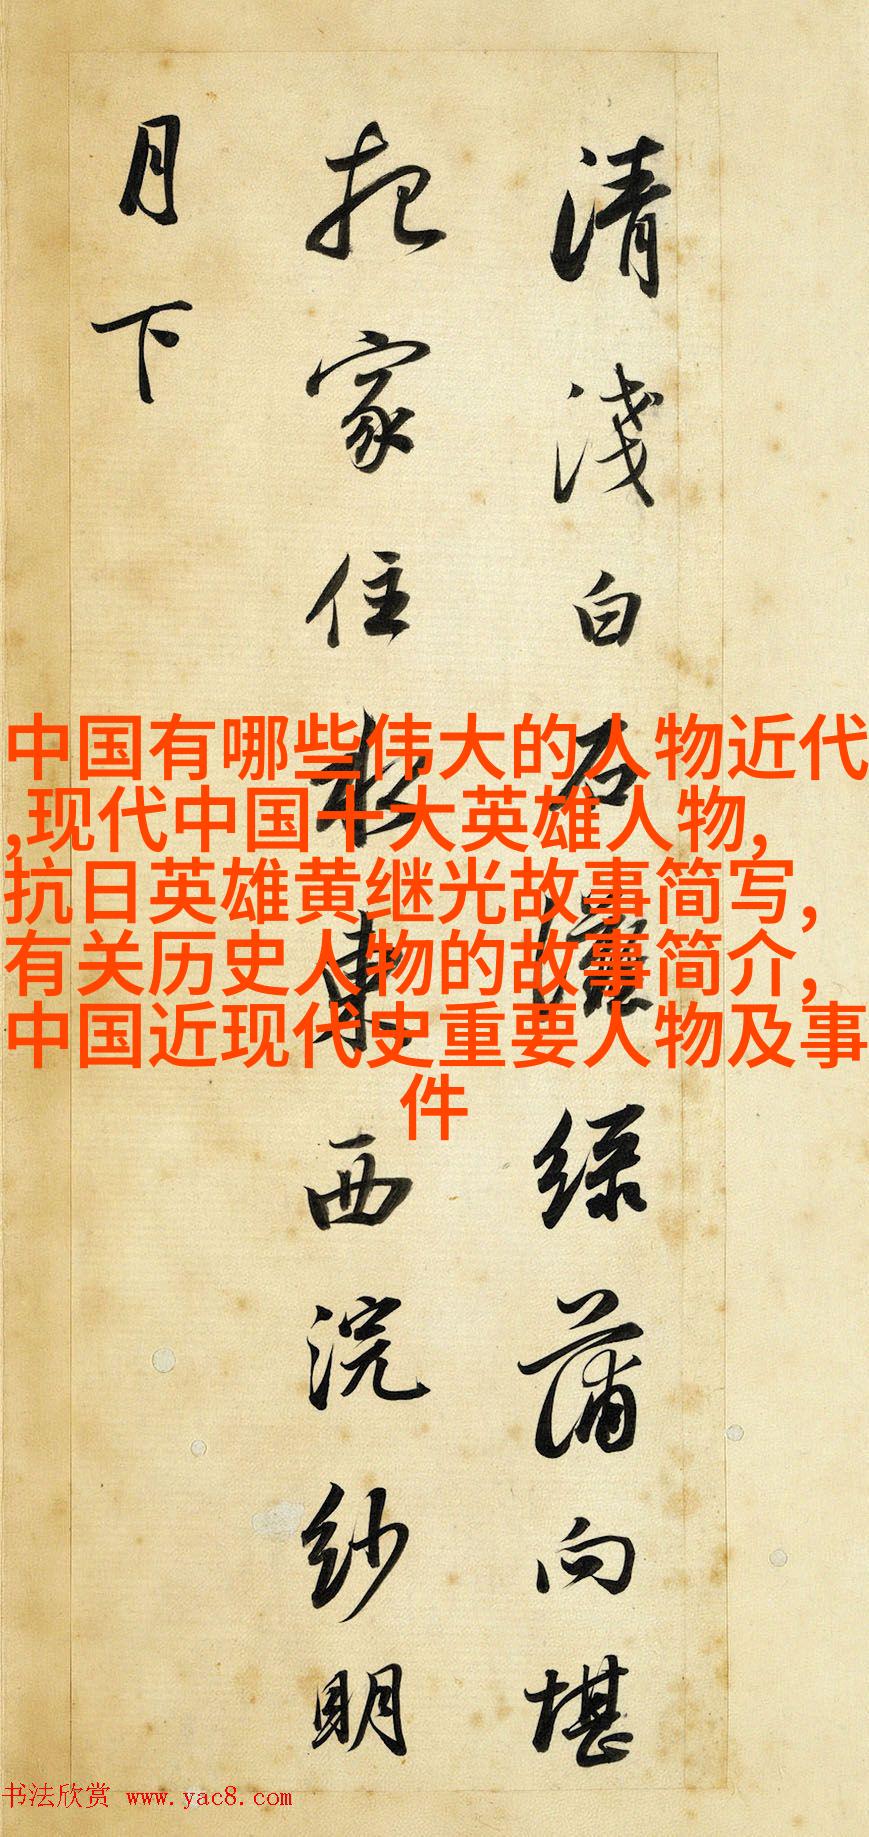 清淺白石灘綠蒲向堪
把家住水東西浣紗明
月下
中国有哪些伟大的人物近代
,现代中国十大英雄人物,
抗日英雄黄继光故事简写,
有关历史人物的故事简介,
中国近现代史重要人物及事
件
书法欣赏 www.yac8.com